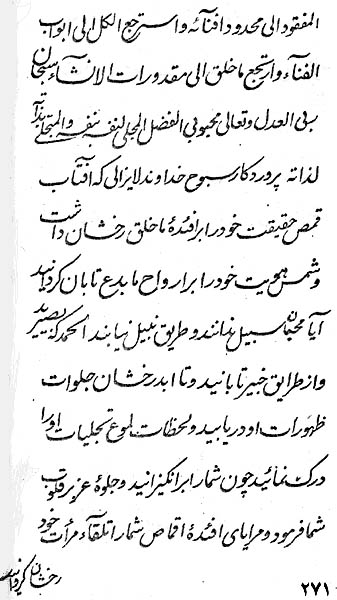 المفقود الی محدود افنآئه و استرجع الکل الی ابواب
الفنآء و ارتجع ما خلق الی مقدورات الانشآء سبحان
ربی العدل و تعالی محبوبی الفضل المجلی لنفسه بنفسه و المتجلی بذاته
لذاته پروردگار سبوح خداوند لایزالی که آفتاب
قمص حقیقت خود را بر افئدهٔ ما خلق رخشان داشت
و شمس هویت خود را بر ارواح ما بدع تابان گردانید
آیا محبان سبیل ندانند و طریق نبیل نیابند الحمد که بصیرید
و از طرایق خبیر تا بانید و تا ابد رخشان جلوات
ظهورات او دریابید و لحظات لموع تجلیات او را
درک نمائید چون شما را برانگیزانید و جلوهٔ عز بر قلوب
شما فرمود و مرایای افئدهٔ اقماص شما را تلقآء مرآت خود
رخشان گردانید
۲۷۱